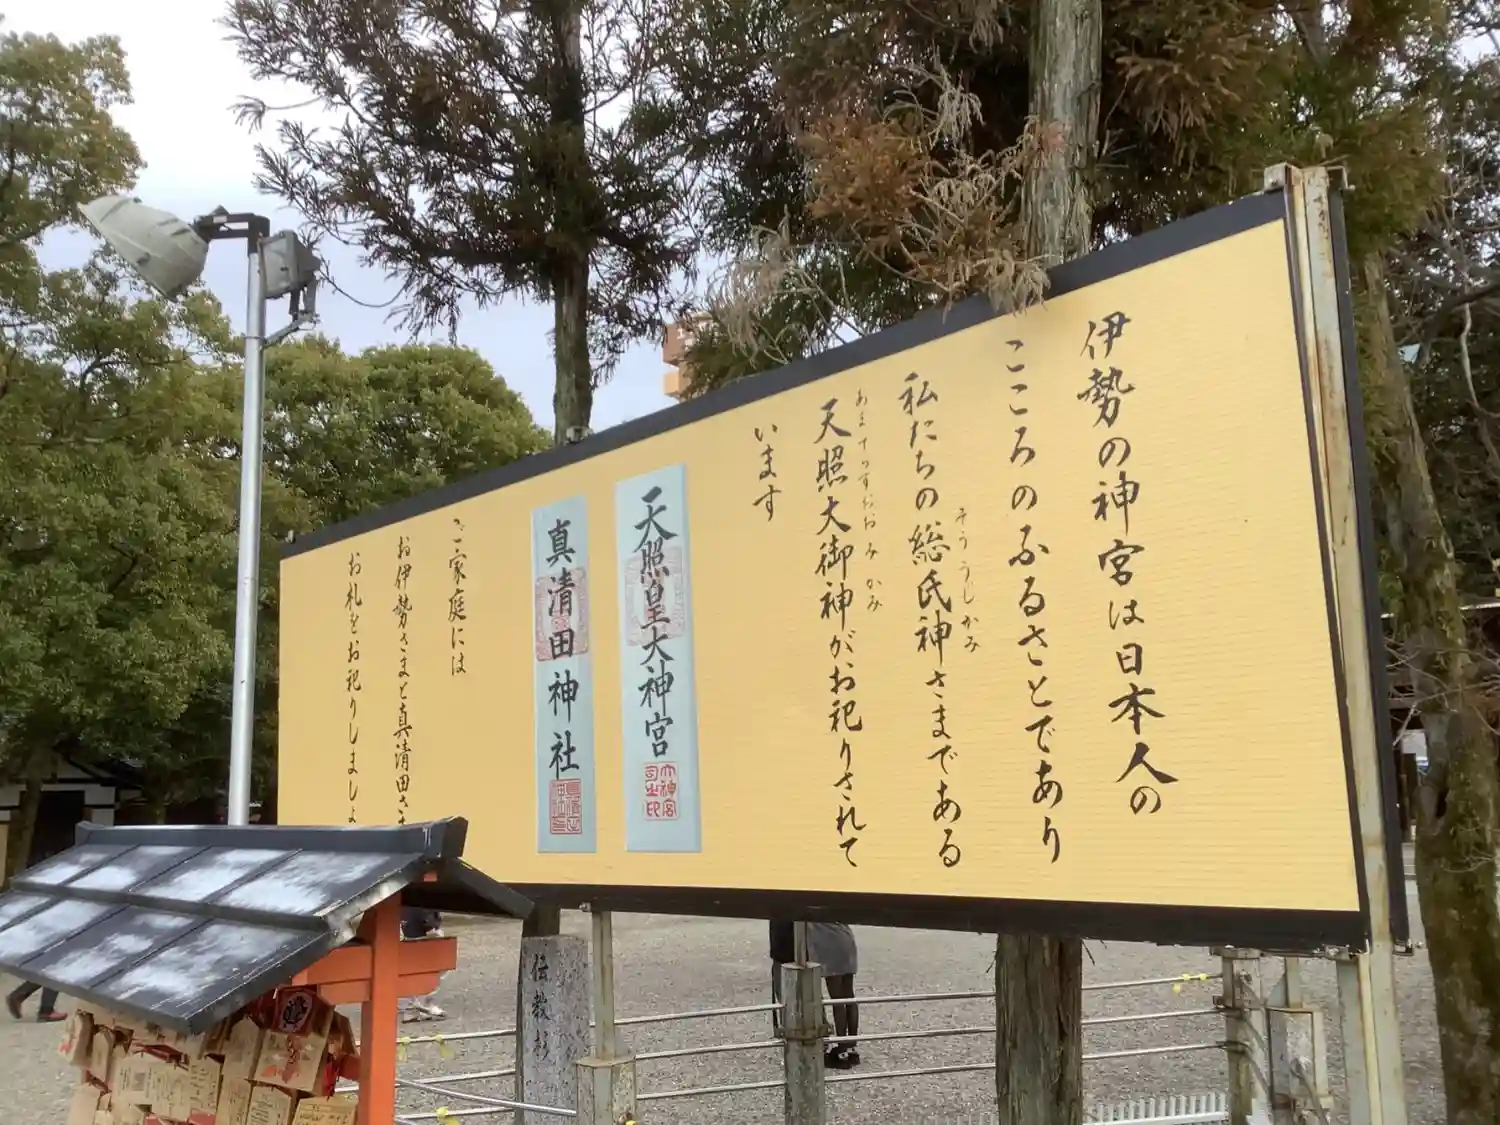 伊勢の神宮は日本人の
こころのふるさとであり
私たちの総氏神さまである
そううじかみ
天照大御神がお祀りされて
あまてらすおおみかみ
います
天照皇大神宮
真清田神社
ご家庭には
お伊勢さまと真清田さ
お札をお祀りしましょ
伝教杉